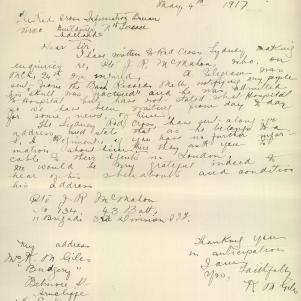 May 4th 1917
Red Cross Information Bureau
Verco Buildings Nth Terrace
Adelaide
Dear Sir,
I have written to Red Cross Sydney making
enquiry re Pte J. R. McMahon who, on
Mch. 24th was wounded. A telegram was
sent from the Base Records Melb notifying my people
that his skull was fractured and he was admitted
to Hospital but have not stated what Hospital
so we have been waiting from day to day
for some news of him.
The Sydney Red Cross have sent along yr
address and state that as he belongs to a
S. A Regiment if you have no further infor-
mation about him they ask you to
cable to their Agents in London.
We would be very grateful indeed to
hear of his whereabouts and condition
his address
Pte J. R McMahon
No 134. 43 Batt.
Brigade 3rd Division AIF.
My address
Mrs R M Giles
Belmore St
Arncliffe
Thanking you
in anticipation
I am,
Yrs. Faithfully
R M Giles